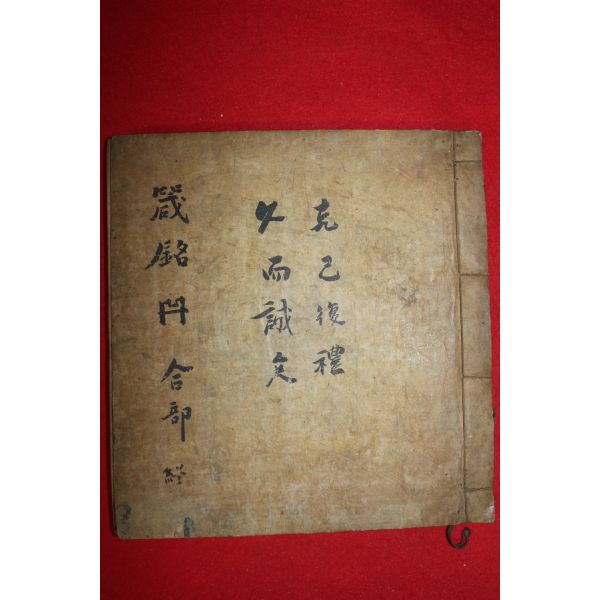 克己復禮
久而誠矣
箴銘冊 合部